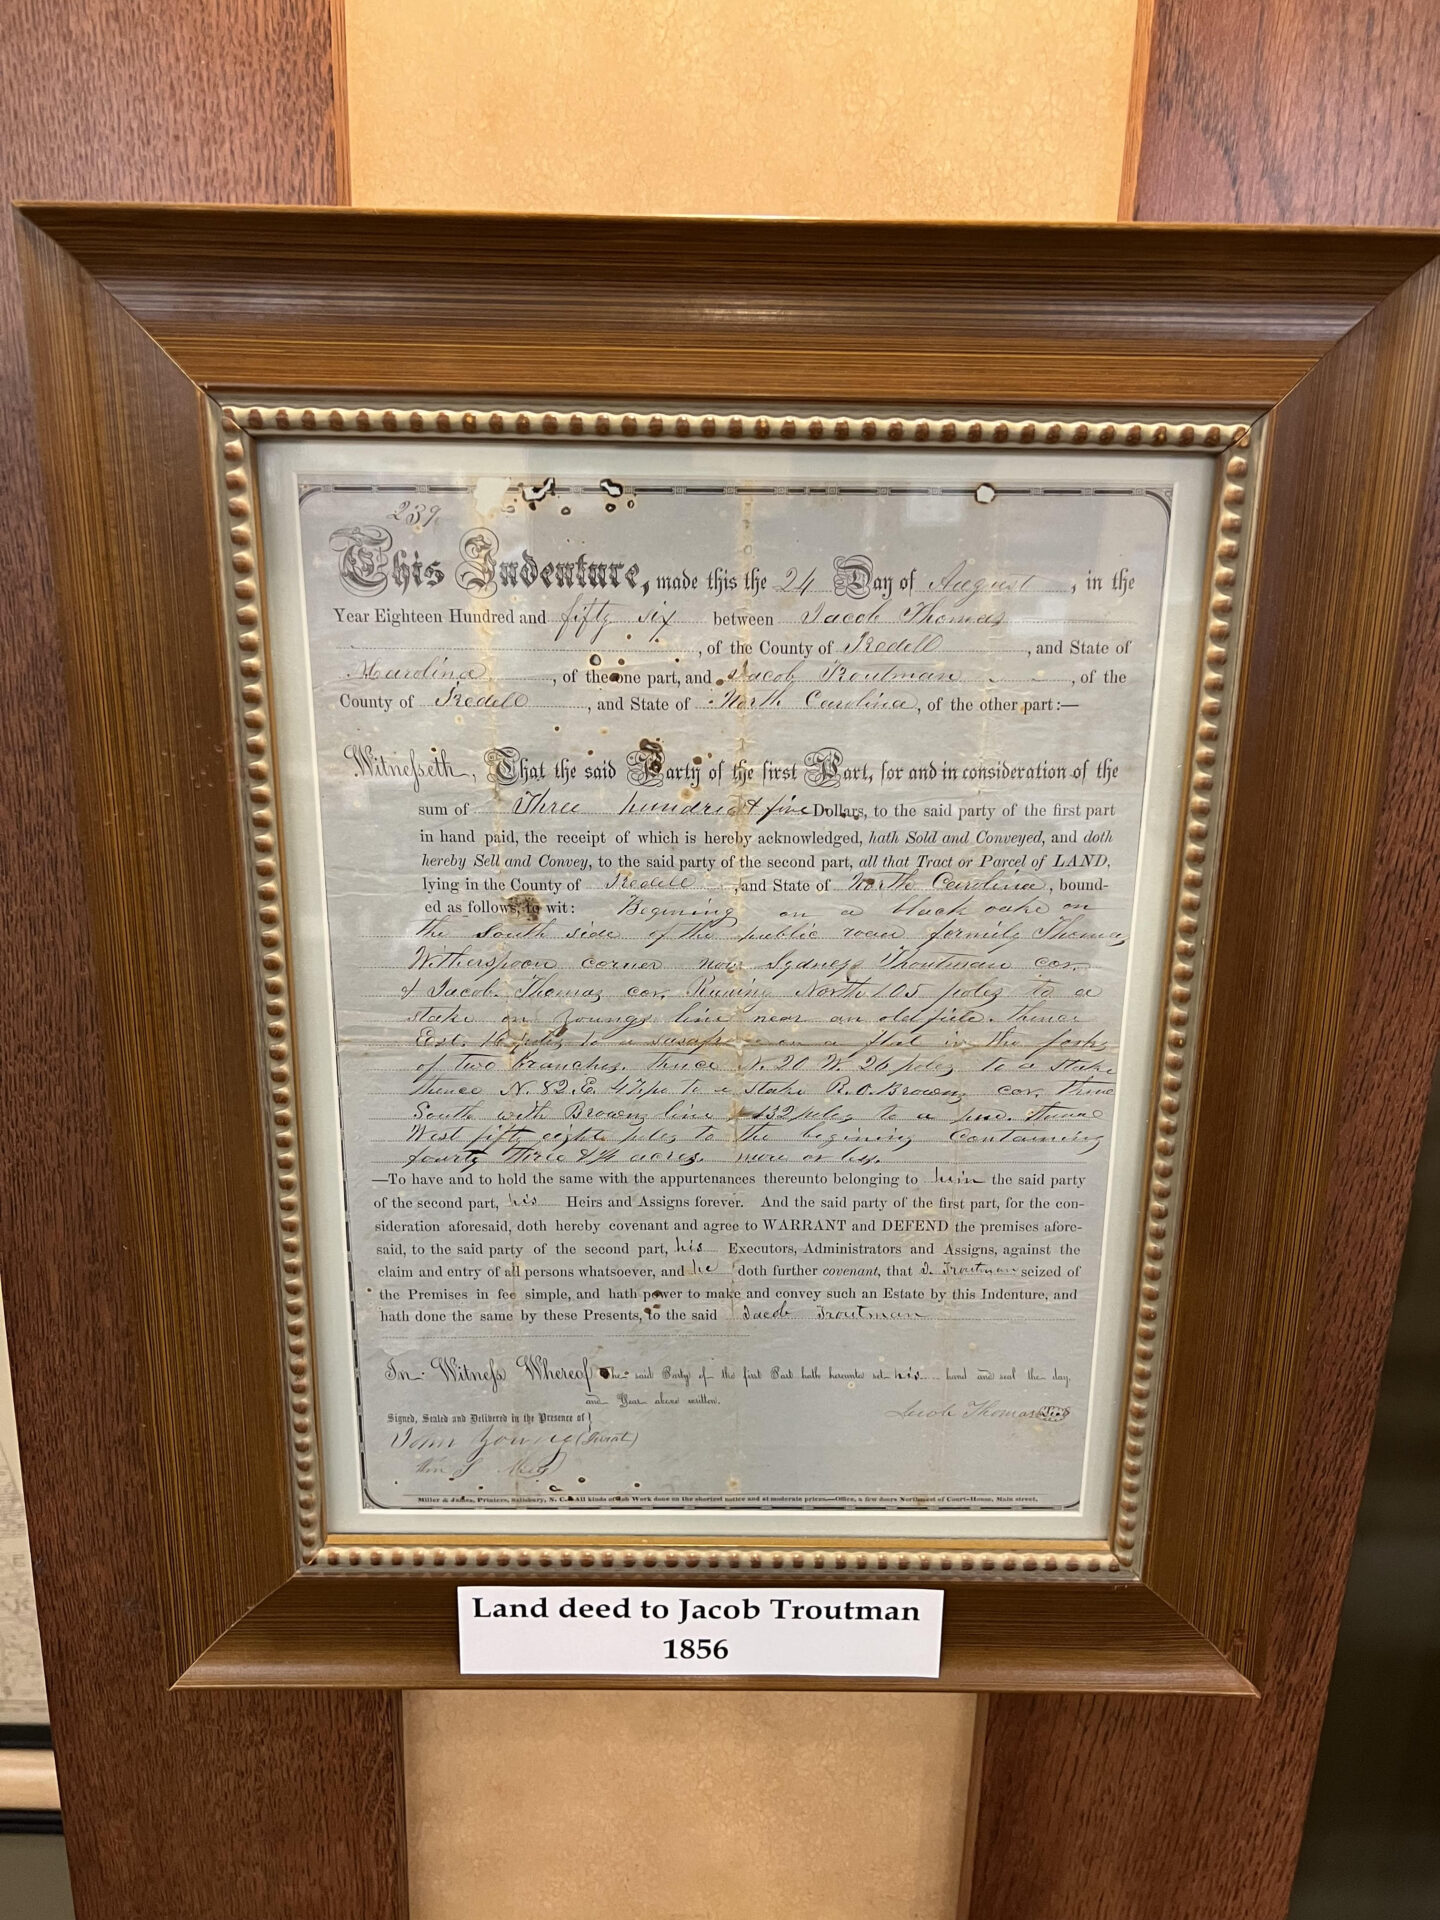 239
This Indenture, made this the 24 Day of August, in the
Year Eighteen Hundred and fifty six between Jacob Thomas
, of the County of Iredell, and State of
N Carolina, of the one part, and Jacob Troutman, of the
County of Iredell, and State of North Carolina, of the other part:—
Witnesseth, That the said Party of the first Part, for and in consideration of the
sum of Three hundred & five Dollars, to the said party of the first part
in hand paid, the receipt of which is hereby acknowledged, hath Sold and Conveyed, and doth
hereby Sell and Convey, to the said party of the second part, all that Tract or Parcel of LAND,
lying in the County of Iredell, and State of North Carolina, bound-
ed as follows, to wit: Begining on a black oake on
the South side of the public road formily Thomas
Witherspoon corner now Sydney Troutman cor.
& Jacob Thomas cor. Runing North 105 poles to a
stake on Youngs line near an old field thence
East 16 poles to a on a flat in the forks
of two branches. thence N. 20 W. 26 poles to a stake
thence N. 82 E. 47 po to a stake R. O. Browns cor. thence
South with Browns line 132 poles to a thence
West fifty eight poles to the begining Containing
fourty three & 1/4 acres, more or less.
—To have and to hold the same with the appurtenances thereunto belonging to him the said party
of the second part, his Heirs and Assigns forever. And the said party of the first part, for the con-
sideration aforesaid, doth hereby covenant and agree to WARRANT and DEFEND the premises afore-
said, to the said party of the second part, his Executors, Administrators and Assigns, against the
claim and entry of all persons whatsoever, and he doth further covenant, that J. Troutman seized of
the Premises in fee simple, and hath power to make and convey such an Estate by this Indenture, and
hath done the same by these Presents, to the said Jacob Troutman
In Witness Whereof the said Party of the first Part hath hereunto set his hand and seal the day
and Year above written.
Signed, Sealed and Delivered in the Presence of }
Jacob Thomas
John Young (Jurat)
Wm S
Miller & James, Printers, Salisbury, N. C. All kinds of Job Work done on the shortest notice and at moderate prices.—Office, a few doors Northwest of Court-House, Main street.
Land deed to Jacob Troutman
1856